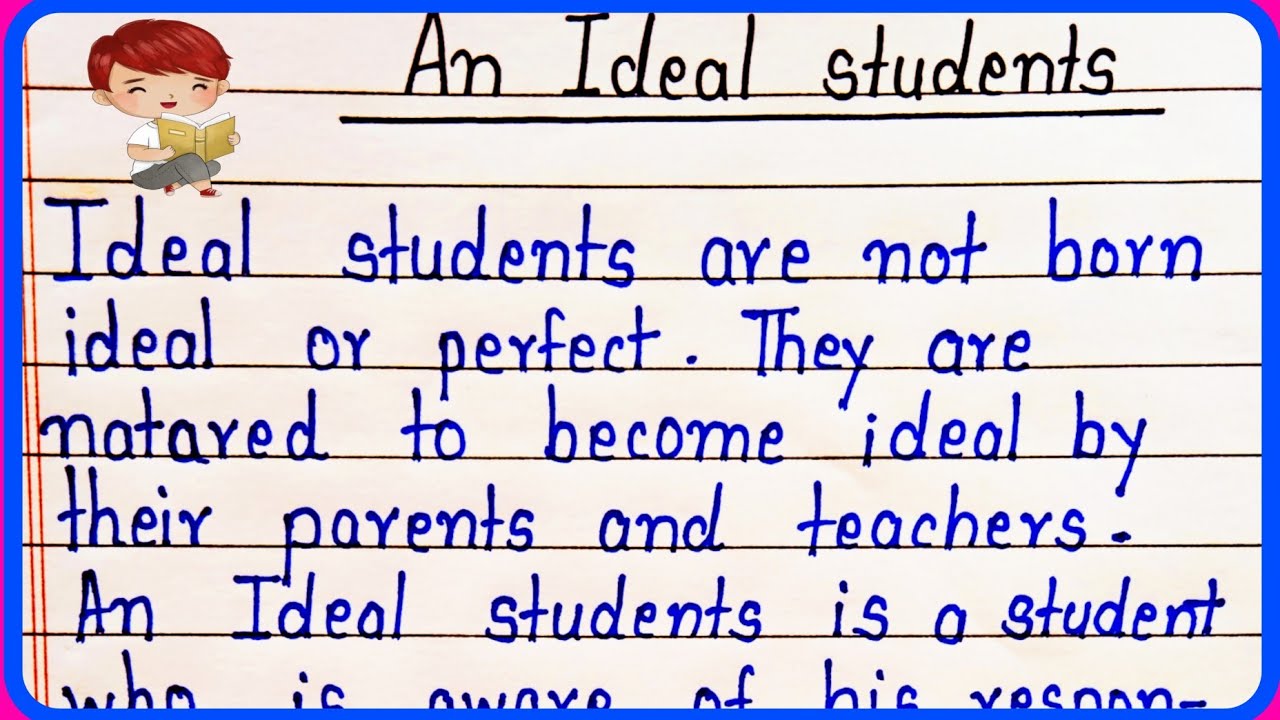 An Ideal students
Ideal students are not born
ideal or perfect. They are
natared to become ideal by
their parents and teachers.
An Ideal students is a student
who is aware of his respon-